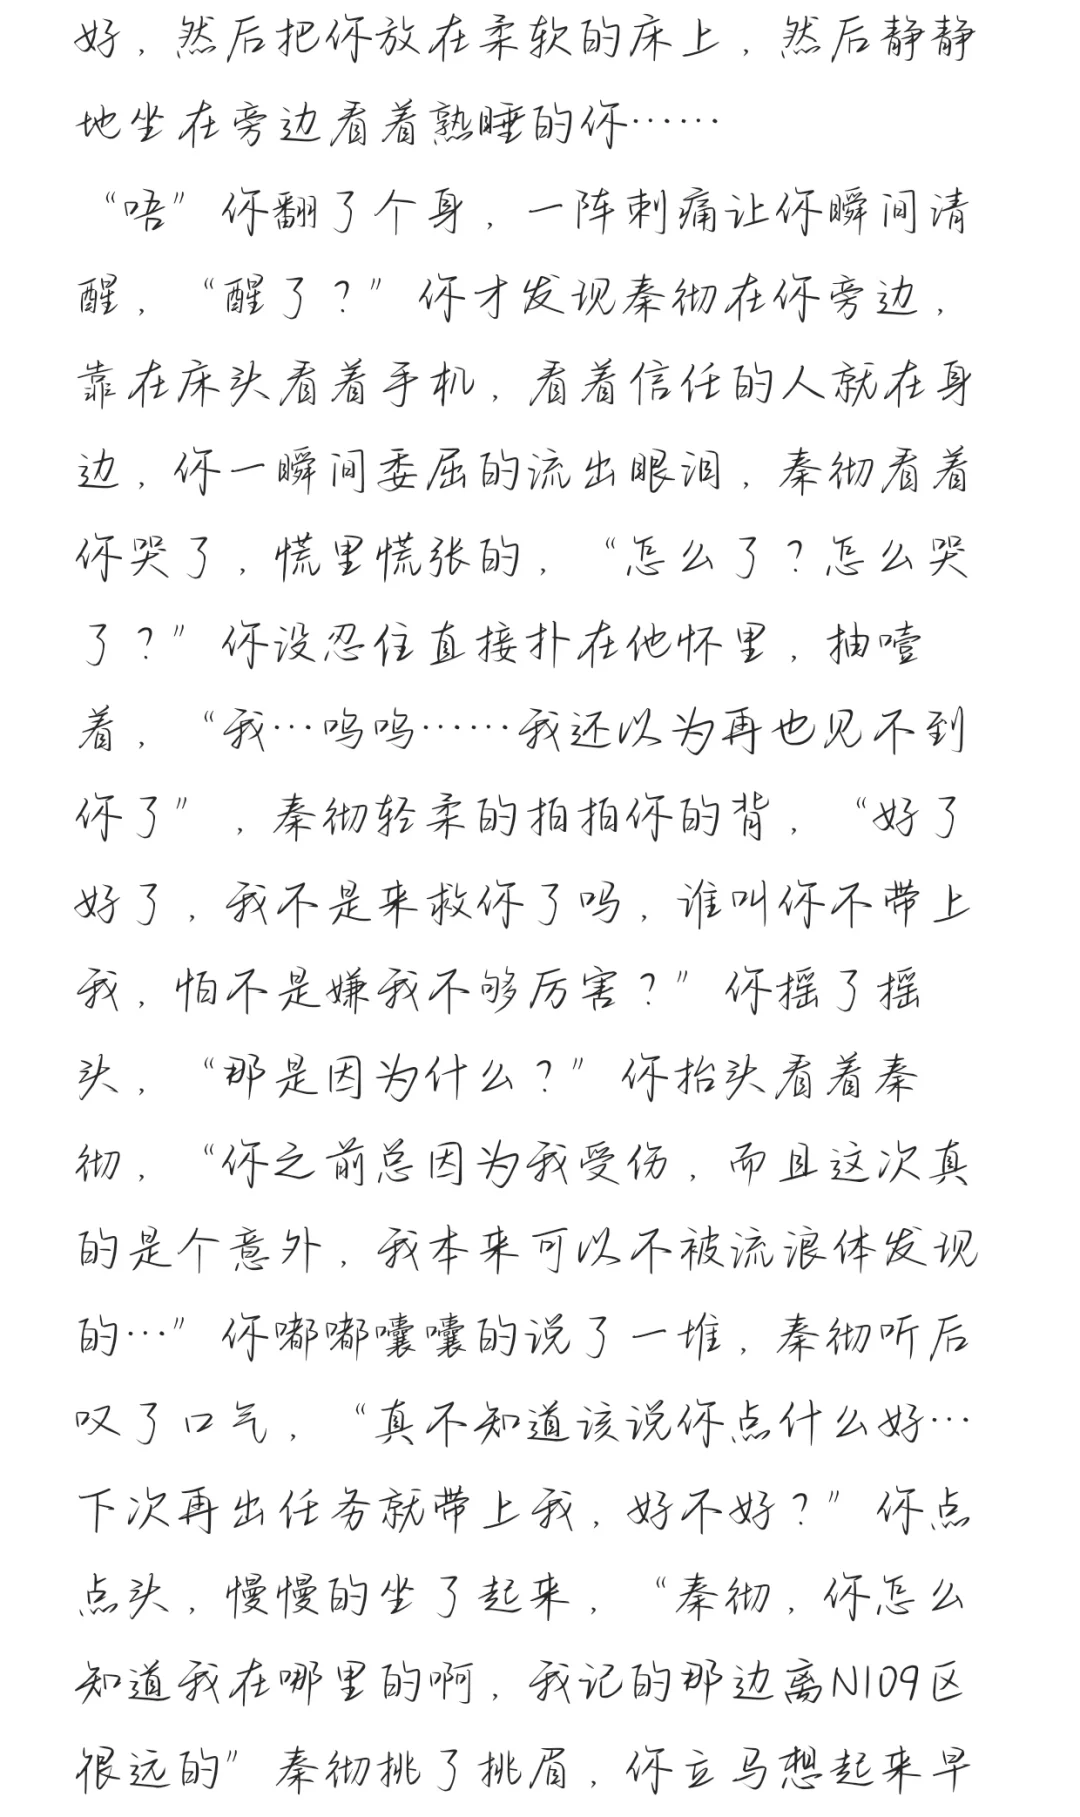 好，然后把你放在柔软的床上，然后静静
地坐在旁边看着熟睡的你……
“唔”你翻了个身，一阵刺痛让你瞬间清
醒，“醒了？”你才发现秦彻在你旁边，
靠在床头看着手机，看着信任的人就在身
边，你一瞬间委屈的流出眼泪，秦彻看着
你哭了，慌里慌张的，“怎么了？怎么哭
了？”你没忍住直接扑在他怀里，抽噎
着，“我…呜呜……我还以为再也见不到
你了”，秦彻轻柔的拍拍你的背，“好了
好了，我不是来救你了吗，谁叫你不带上
我，怕不是嫌我不够厉害？”你摇了摇
头，“那是因为什么？”你抬头看着秦
彻，“你之前总因为我受伤，而且这次真
的是个意外，我本来可以不被流浪体发现
的…”你嘟嘟囔囔的说了一堆，秦彻听后
叹了口气，“真不知道该说你点什么好…
下次再出任务就带上我，好不好？”你点
点头，慢慢的坐了起来，“秦彻，你怎么
知道我在哪里的啊，我记的那边离N109区
很远的”秦彻挑了挑眉，你立马想起来早